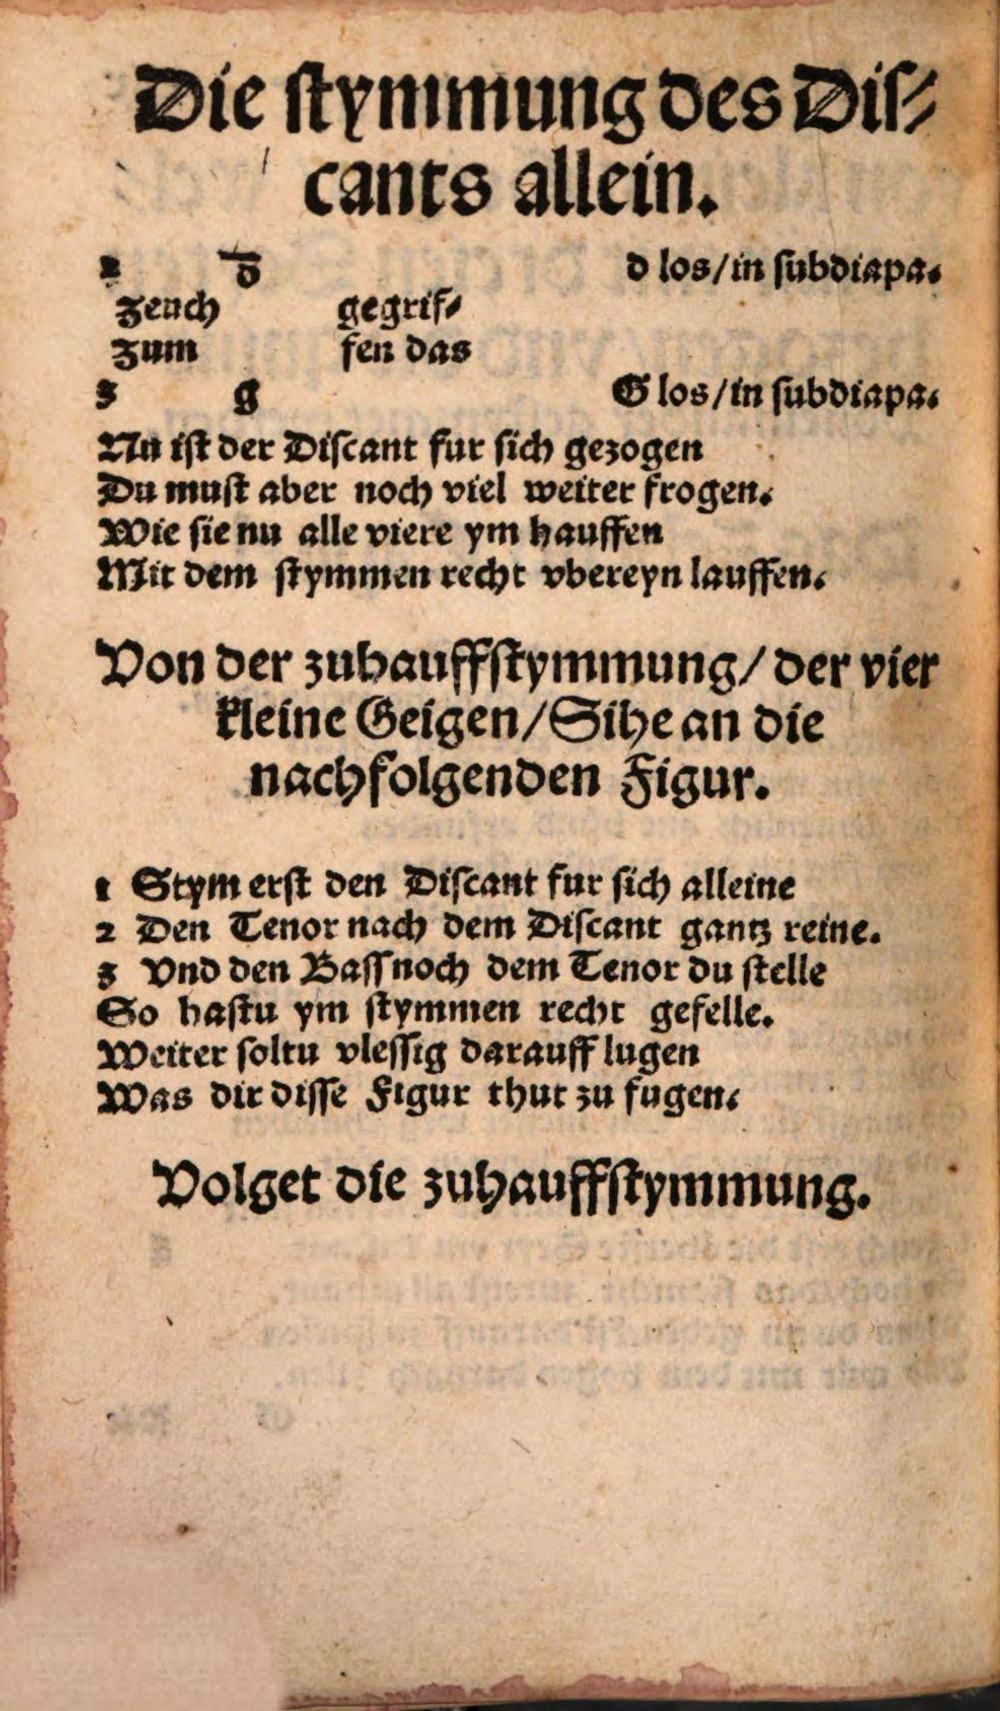 Die stymmung des Dis⸗
cants allein.
2 d̅ d los/in subdiapa.
zeuch gegrif⸗
zum fen das
3 g G los/in subdiapa.
Nu ist der Discant fur sich gezogen
Du must aber noch viel weiter frogen.
Wie sie nu alle viere ym hauffen
Mit dem stymmen recht vbereyn lauffen.
Von der zuhauffstymmung/ der vier
kleine Geigen/Sihe an die
nachfolgenden Figur.
1 Stym erst den Discant fur sich alleine
2 Den Tenor nach dem Discant gantz reine.
3 Vnd den Bass noch dem Tenor du stelle
So hastu ym stymmen recht gefelle.
Weiter soltu vlessig darauff lugen
Was dir disse Figur thut zu fugen.
Volget die zuhauffstymmung.